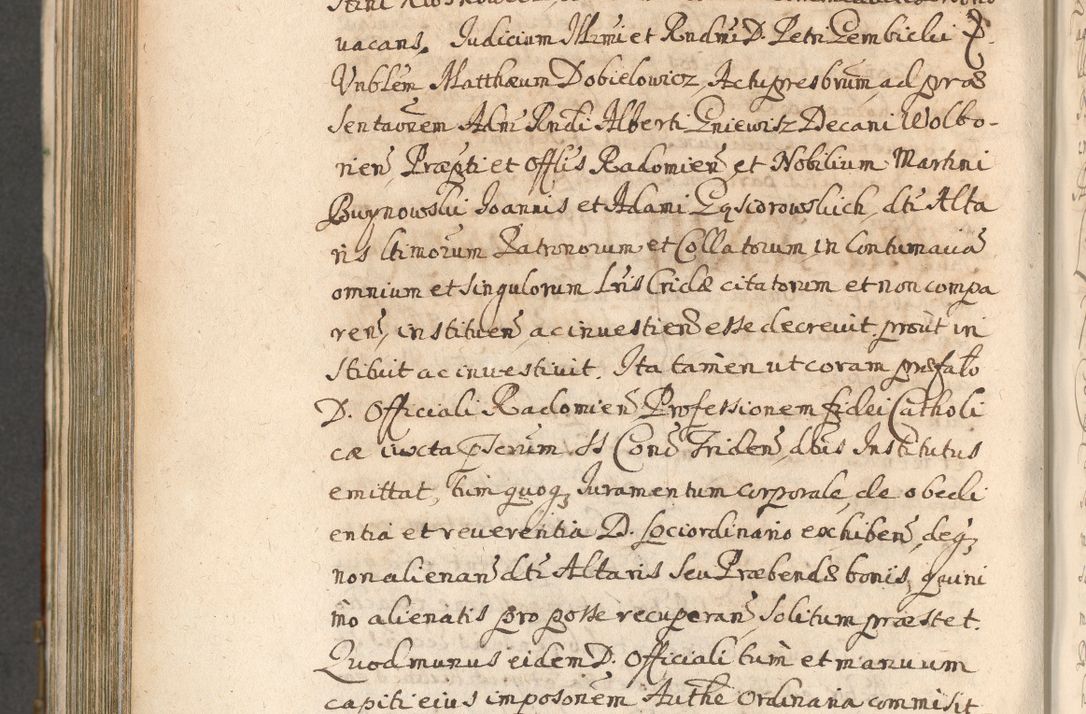 vacans. Judicium Illmi et Rndmi D. Petri Gembicki E.
Vnblem Matthæum Dobielowicz, Actu presbrum, ad præ
sentaõnem Adm Rndi Alberti Gniewisz Decani Wolbo-
rien̄, Præpti et Offlis Radomien̄ et Nobilium Martini
Buynowski Joannis et Adami Gąsiorowskich, dti Alta
ris ltimorum Patronorum et Collatorum in Contumaciã
omnium et singulorum lris Cridæ citatorum et non compa
ren̄, instituen̄ ac inuestien̄ esse decreuit. prout in
stituit ac inuestiuit. Ita tamen ut coram præfato
D. Officiali Radomien̄ Professionem fidei Catholi
cæ iuxta pserum SS Conc Triden̄, dbus Institutus
emittat, tum quoq₃ Iuramentum corporale, de obedi
entia et reuerentia D. Loci ordinario exhiben̄, deq₃
non alienan̄ dti Altaris seu Præbendæ bonis, quini
mo alienatis pro posse recuperan̄, solitum præstet.
Quod munus eidem D. Officiali tum et manuum
capiti eius imposonem Authe Ordinaria commisit